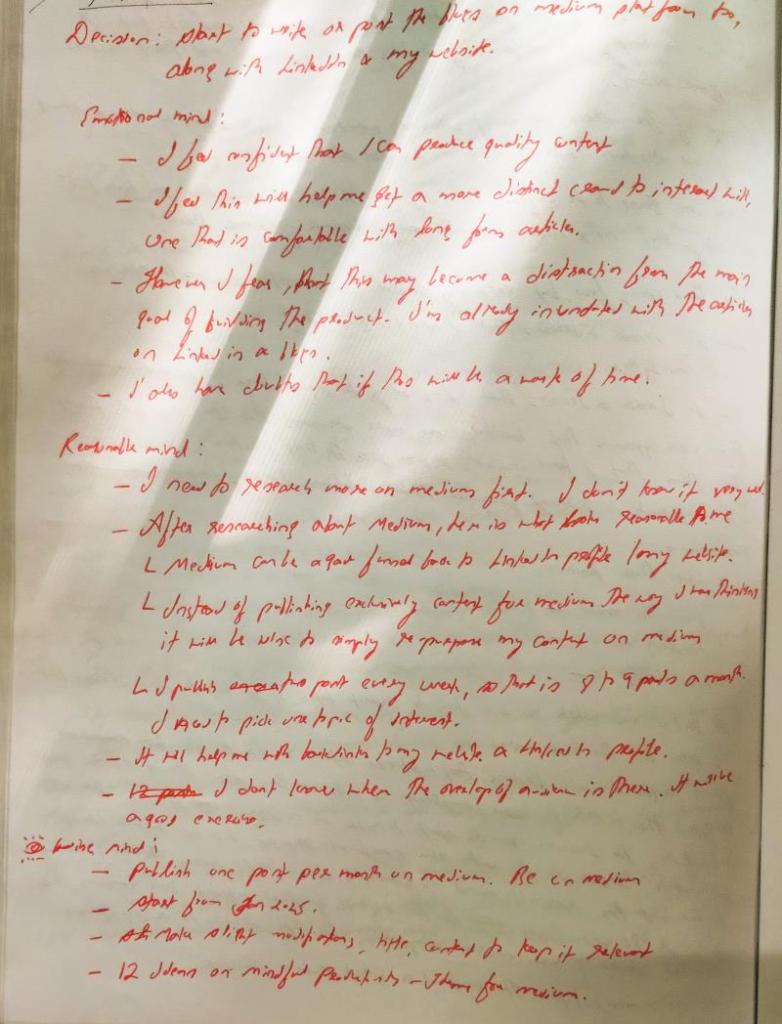 Decision: start to write or post the blogs on medium platform too,
along with LinkedIn & my website.
Emotional mind:
- I feel confident that I can produce quality content
- I feel this will help me get a more distinct crowd to interact with,
one that is comfortable with long form articles.
- However I fear, that this may become a distraction from the main
goal of building the product. I'm already inundated with the articles
on LinkedIn & blogs.
- I also have doubts that if this will be a waste of time.
Reasonable mind:
- I need to research more on medium first. I don't know it very well.
- After researching about Medium, here is what looks reasonable to me
L Medium can be a good funnel back to LinkedIn profile / my website.
L Instead of publishing exclusively content for medium the way I was thinking
it will be wise to simply repurpose my content on medium
L I publish two post every week, so that is 8 to 9 posts a month.
I need to pick one topic of interest.
- It will help me with backlinks to my website & LinkedIn profile.
- I don't know where the overlap of is there. It will be
a good exercise.
Wise mind:
- Publish one post per month on medium. Be on medium
- Start from Jan 2025.
- Make slight modifications, title, content to keep it relevant
- 12 Ideas on mindful productivity - theme for medium.